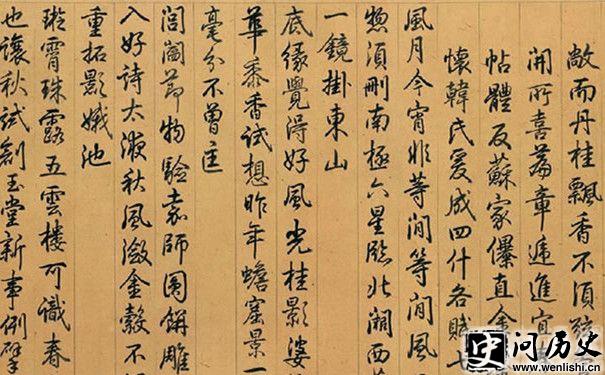 敞而丹桂飄香不須
開所喜篇章遞進宜
帖體反蘇家儤直金
懷韓氏爰成四什各賦七
風月今宵非等閒等閒風
惣須刪南極六星臨北湖西
一鏡掛東山
底緣覺得好風光桂影婆
華黍香試想昨年蟾窟景一
毫分不曾
閶闔節物驗袁師圓餅雕
入好詩太液秋風瀲金縠不
重拓影娥池
璇霄珠露五雲樓可識春
也讓秋試創玉堂新事例擘
问历史
www.wenlishi.cn